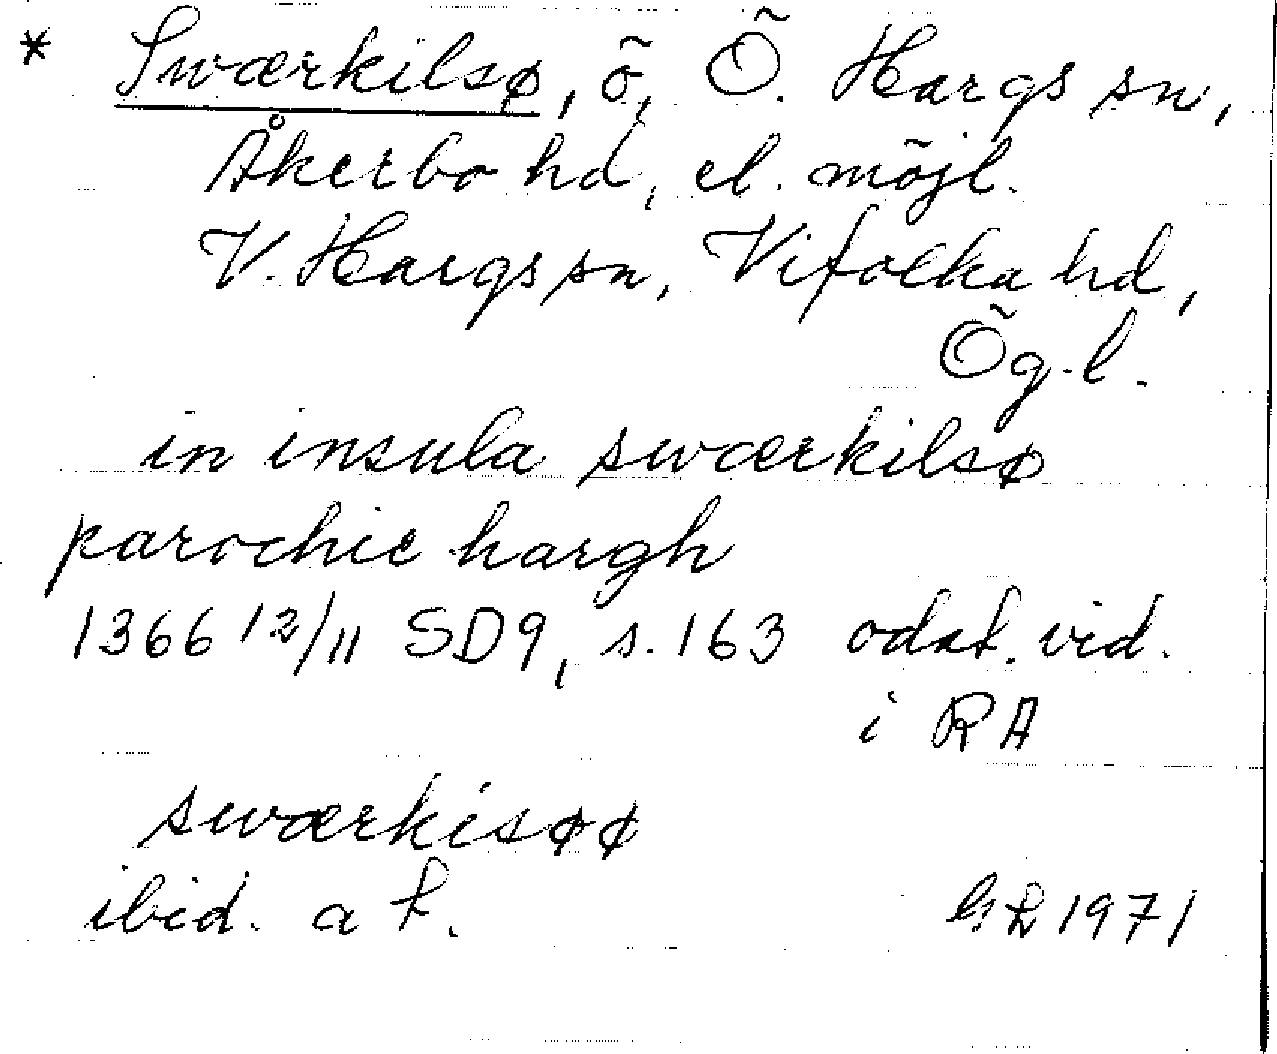 * Swærkilsø, ö, Ö. Hargs sn,
Åkerbo hd, el. möjl.
V. Hargs sn, Vifolka hd,
Ög. l.
in insula swærkilsø
parochie hargh
1366 12/11 SD9, s. 163 odat. vid.
i RA
swærkisøø
ibid. a t.
1971